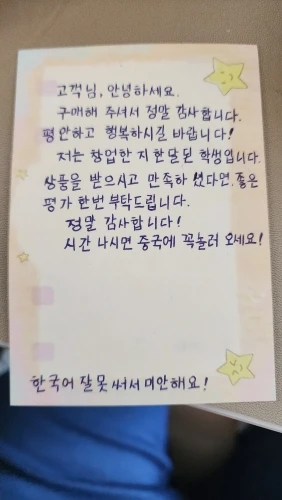 고객님, 안녕하세요.
구매해 주셔서 정말 감사합니다.
평안하고 행복하시길 바랍니다!
저는 창업한 지 한달 된 학생입니다.
상품을 받으시고 만족하셨다면.좋은
평가 한번 부탁드립니다.
정말 감사합니다!
시간 나시면 중국에 꼭놀러 오세요!
한국어 잘못 써서 미안해요!